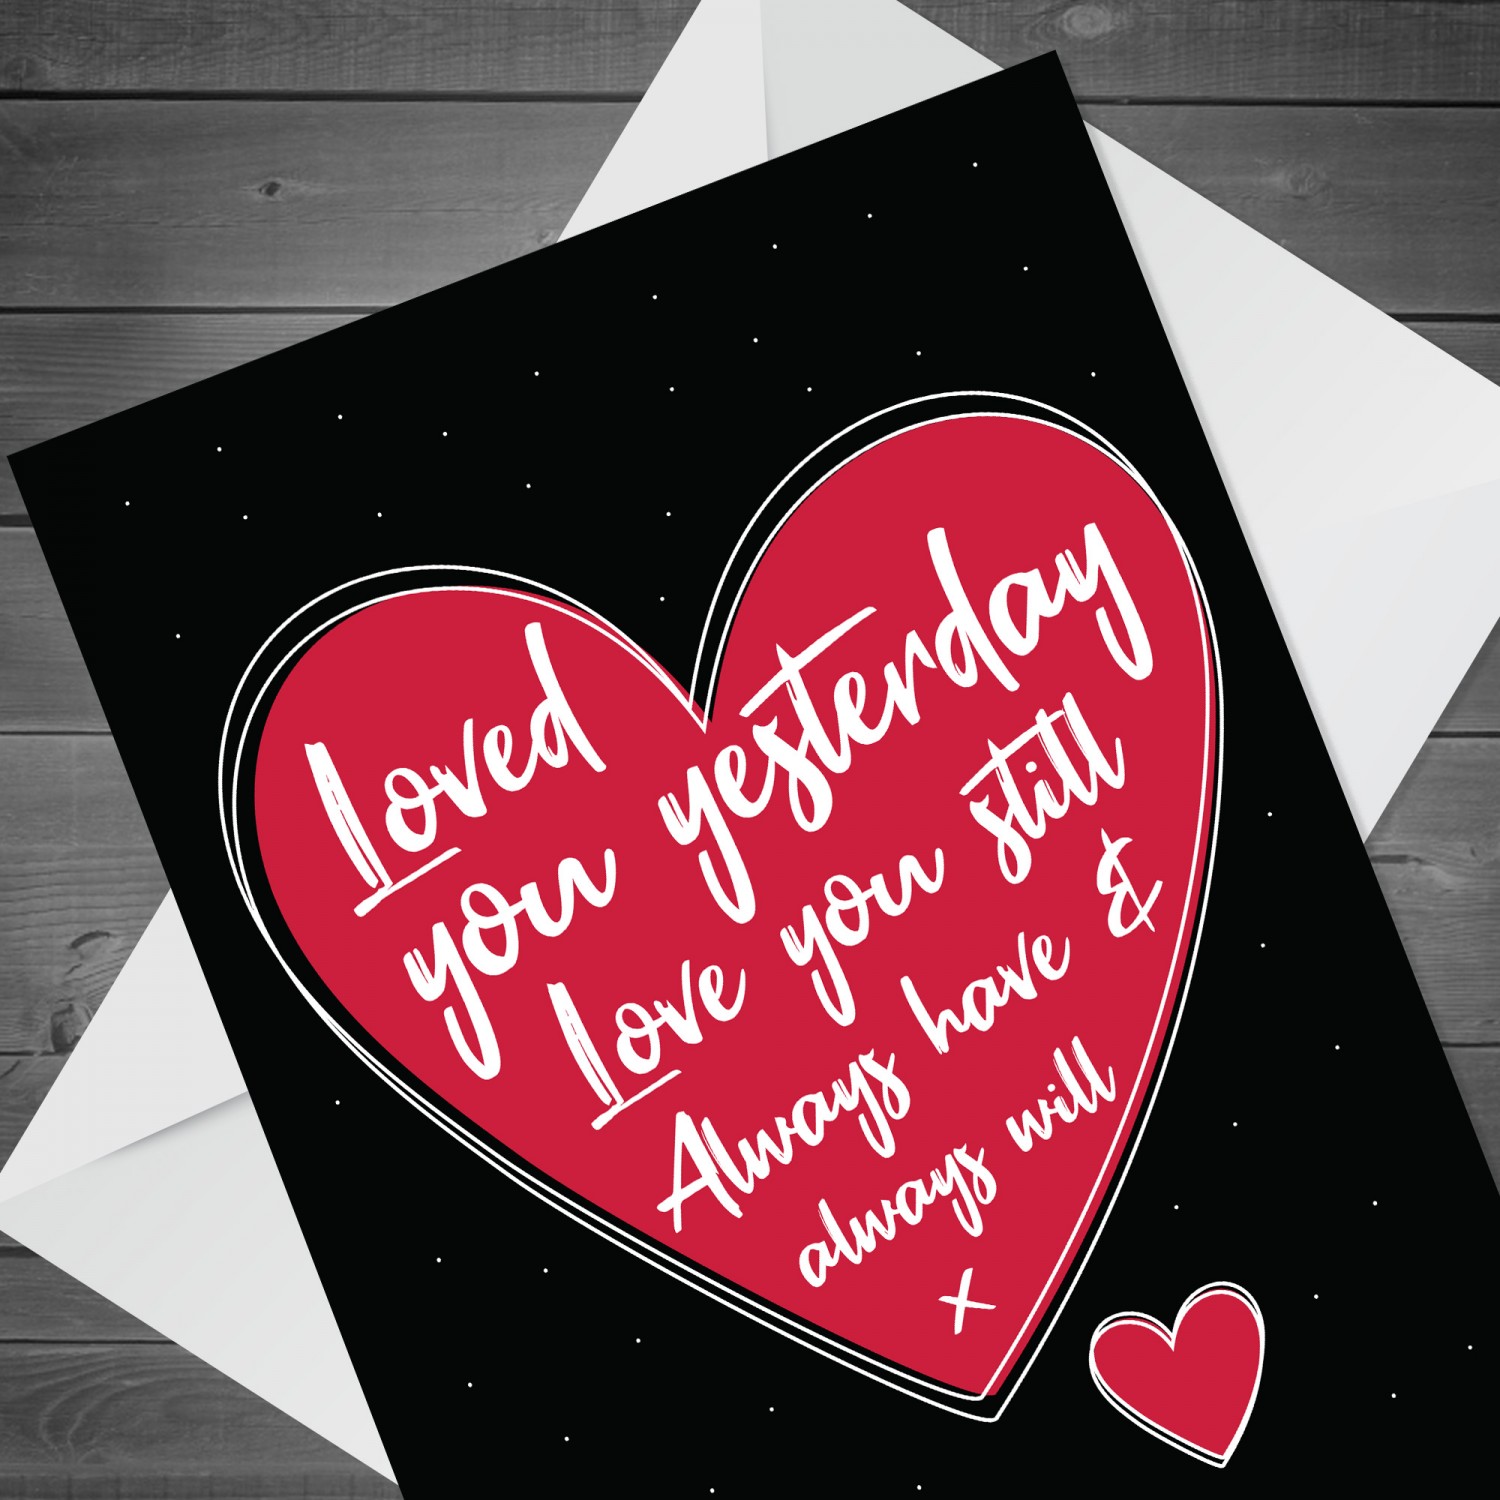 Loved
you yesterday
Love you still
Always have &
always will
x